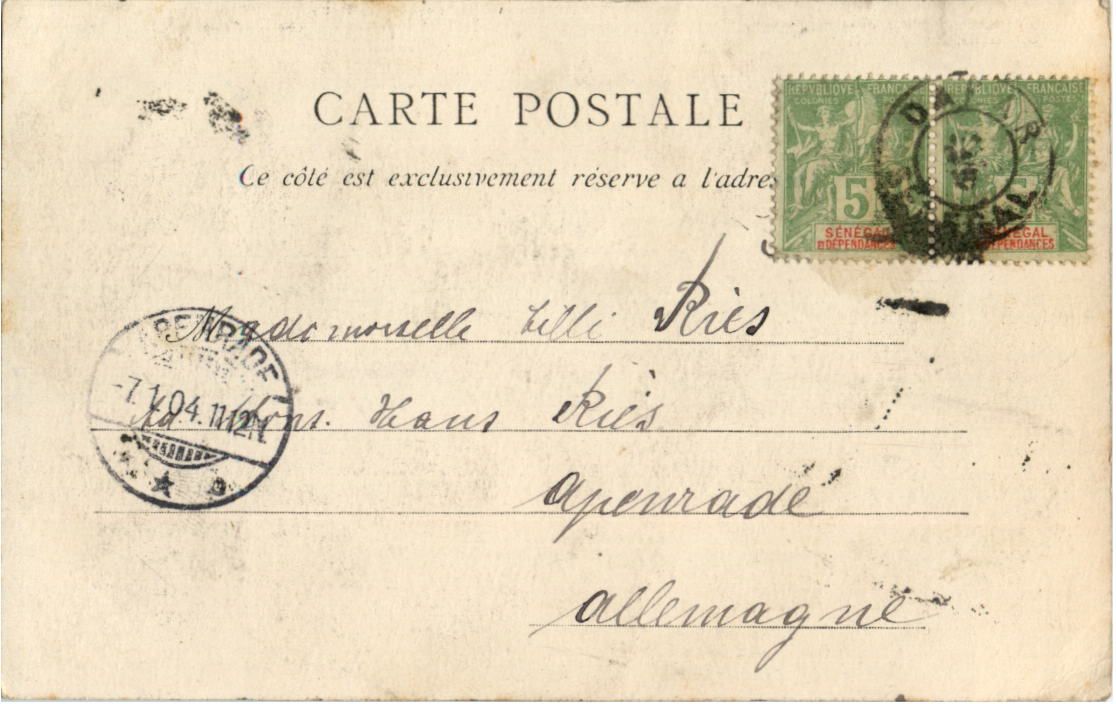 CARTE POSTALE
Ce côté est exclusivement réserve a l'adres
REPVBLIQVE FRANÇAISE
COLONIES POSTES
5
SÉNÉGAL
ET DÉPENDANCES
REPVBLIQVE FRANÇAISE
COLONIES POSTES
5
SÉNÉGAL
ET DÉPENDANCES
DAKAR
SÉNÉGAL
Mademoiselle Lilli Riès
Hans Riès
Apenrade
Allemagne
APENRADE
-7.1.04.11-12N.